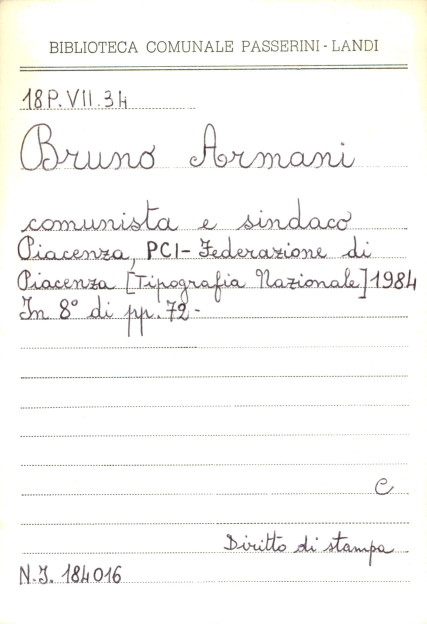 BIBLIOTECA COMUNALE PASSERINI-LANDI
18P.VII.34
Bruno Armani
comunista e sindaco
Piacenza, PCI-Federazione di
Piacenza [Tipografia Nazionale] 1984
In 8° di pp. 72-
C
Diritto di stampa
N.I. 184016